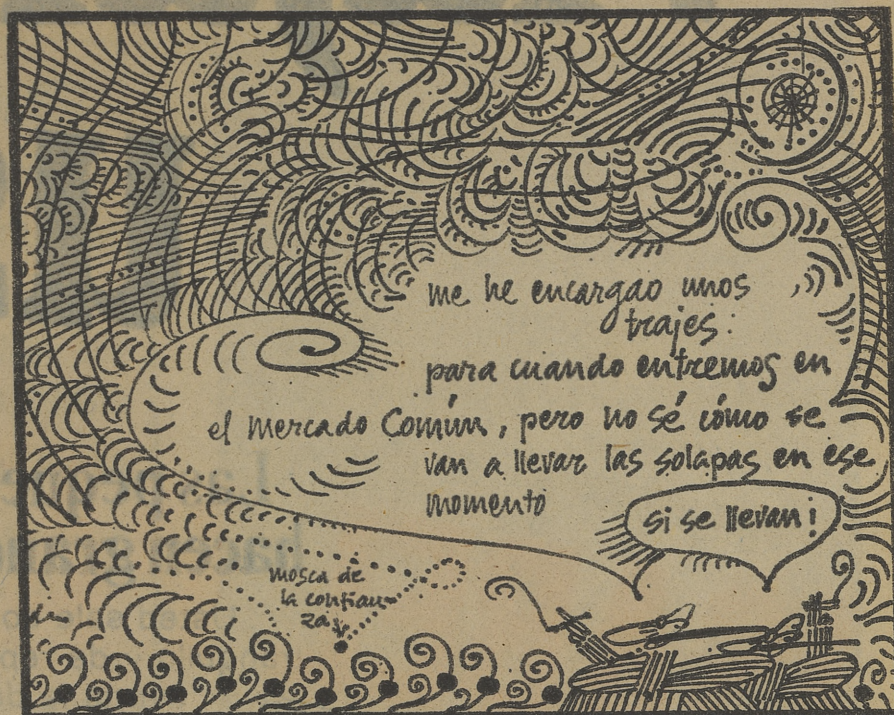 me he encargao unos
trajes
para cuando entremos en
el mercado Común, pero no sé cómo se
van a llevar las solapas en ese
momento
si se llevan!
mosca de
la confian-
za